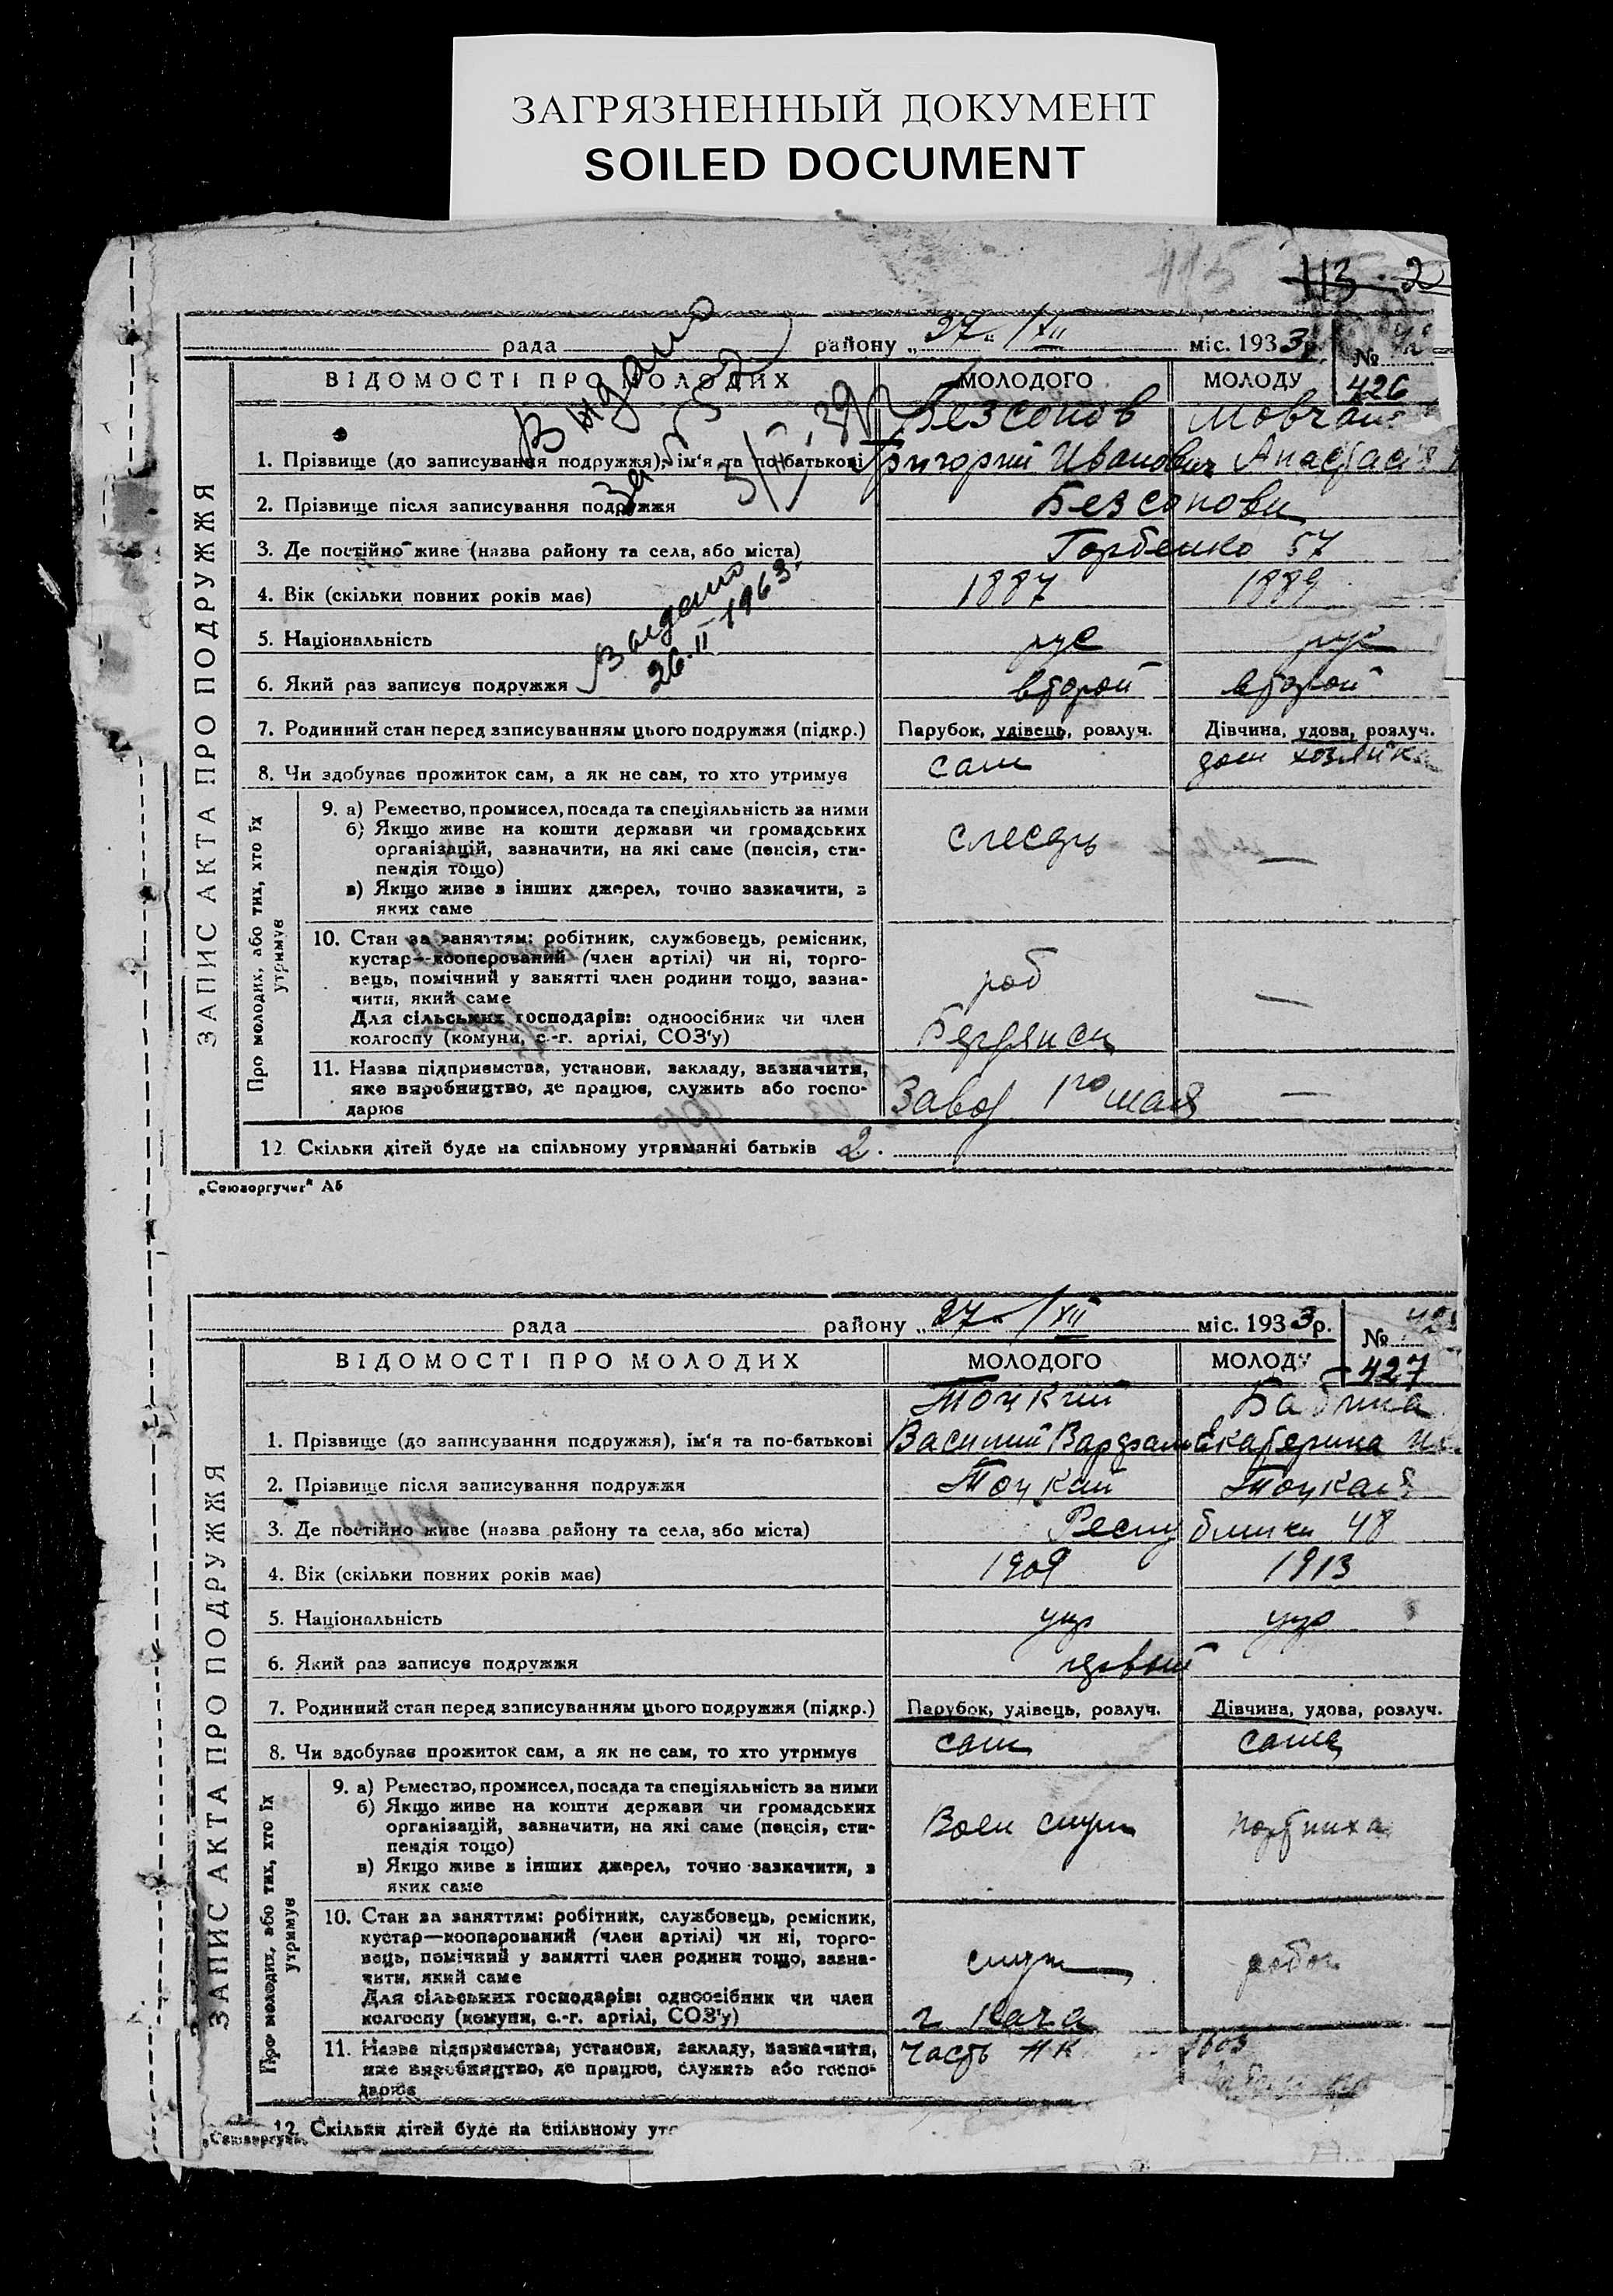 ЗАГРЯЗНЕННЫЙ ДОКУМЕНТ
SOILED DOCUMENT
115
113 2
рада района „27“ /XII міс. 1933р. №
426
ВІДОМОСТІ ПРО МОЛОДИХ МОЛОДОГО МОЛОДУ
Безсонов Мовчан
1. Прізвище (до записування подружжя), ім'я та по-батькові Григорий Иванович Анастасія
2. Прізвище після записування подружжя Безсонови
3. Де постійно живе (назва району та села, або міста) Горбенко 57
4. Вік (скільки повних років має) 1887 1889
5. Національність рус рус
6. Який раз записує подружжя второй второй
7. Родинний стан перед записуванням цього подружжя (підкр.) Парубок, удівець, розлуч. Дівчина, удова, розлуч.
8. Чи здобуває прожиток сам, а як не сам, то хто утримує сам дом хозяйка
Видано
Видано
26.II 1963.
ЗАПИС АКТА ПРО ПОДРУЖЖЯ
Про молодих, або тих, хто їх утримує
9. а) Ремество, промисел, посада та спеціяльність за ними
б) Якщо живе на кошти держави чи громадських
організацій, зазначити, на які саме (пенсія, сти-
пендія тощо)
в) Якщо живе з інших джерел, точно зазначити, з
яких саме
слесарь —
10. Стан за заняттям: робітник, службовець, ремісник,
кустар—кооперований (член артілі) чи ні, торго-
вець, помічний у занятті член родини тощо, зазна-
чити, який саме
Для сільських господарів: одноосібник чи член
колгоспу (комуни, с.-г. артілі, СОЗ'у)
роб —
Бердянск
11. Назва підприємства, установи, закладу, зазначити,
яке виробництво, де працює, служить або госпо-
дарює
Завод 1го мая —
12. Скільки дітей буде на спільному утриманні батьків 2.
„Союзоргучет“ А5
рада району „27“ /XII міс. 1933р. №
427
ВІДОМОСТІ ПРО МОЛОДИХ МОЛОДОГО МОЛОДУ
Тоцкий Бабина
1. Прізвище (до записування подружжя), ім'я та по-батькові Василий Варфалом Екатерина
2. Прізвище після записування подружжя Тоцкий Тоцкая
3. Де постійно живе (назва району та села, або міста) Республики 48
4. Вік (скільки повних років має) 1909 1913
5. Національність укр укр
6. Який раз записує подружжя первый
7. Родинний стан перед записуванням цього подружжя (підкр.) Парубок, удівець, розлуч. Дівчина, удова, розлуч.
8. Чи здобуває прожиток сам, а як не сам, то хто утримує сам сама
ЗАПИС АКТА ПРО ПОДРУЖЖЯ
Про молодих, або тих, хто їх утримує
9. а) Ремество, промисел, посада та спеціяльність за ними
б) Якщо живе на кошти держави чи громадських
організацій, зазначити, на які саме (пенсія, сти-
пендія тощо)
в) Якщо живе з інших джерел, точно зазначити, з
яких саме
Воен служ портниха
10. Стан за заняттям: робітник, службовець, ремісник,
кустар—кооперований (член артілі) чи ні, торго-
вець, помічний у занятті член родини тощо, зазна-
чити, який саме
Для сільських господарів: одноосібник чи член
колгоспу (комуни, с.-г. артілі, СОЗ'у)
служ работ
г Кача
11. Назва підприємства, установи, закладу, зазначити,
яке виробництво, де працює, служить або госпо-
дарює
часть НК
12. Скільки дітей буде на спільному ут
„Союзоргучет